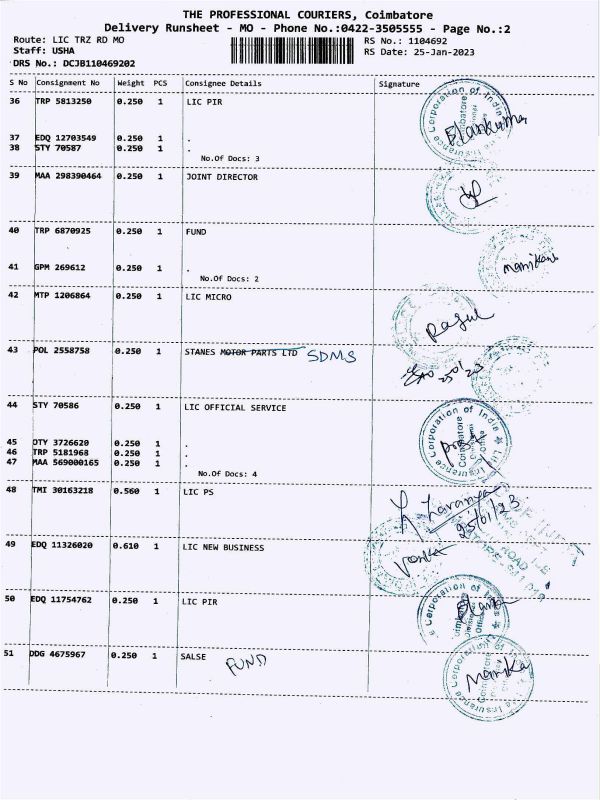 THE PROFESSIONAL COURIERS, Coimbatore
Delivery Runsheet - MO - Phone No.:0422-3505555 - Page No.:2
Route: LIC TRZ RD MO RS No.: 1104692
Staff: USHA RS Date: 25-Jan-2023
DRS No.: DCJB110469202
S No Consignment No Weight PCS Consignee Details Signature
36 TRP 5813250 0.250 1 LIC PIR
37 EDQ 12703549 0.250 1 .
38 STY 70587 0.250 1 .
No.Of Docs: 3
39 MAA 298390464 0.250 1 JOINT DIRECTOR
40 TRP 6870925 0.250 1 FUND
41 GPM 269612 0.250 1 .
No.Of Docs: 2
42 MTP 1206864 0.250 1 LIC MICRO
43 POL 2558758 0.250 1 STANES MOTOR PARTS LTD SDMS
44 STY 70586 0.250 1 LIC OFFICIAL SERVICE
45 OTY 3726620 0.250 1 .
46 TRP 5181968 0.250 1 .
47 MAA 569000165 0.250 1 .
No.Of Docs: 4
48 TMI 30163218 0.560 1 LIC PS
25/01/23
49 EDQ 11326020 0.610 1 LIC NEW BUSINESS
50 EDQ 11754762 0.250 1 LIC PIR
51 DDG 4675967 0.250 1 SALSE FUND